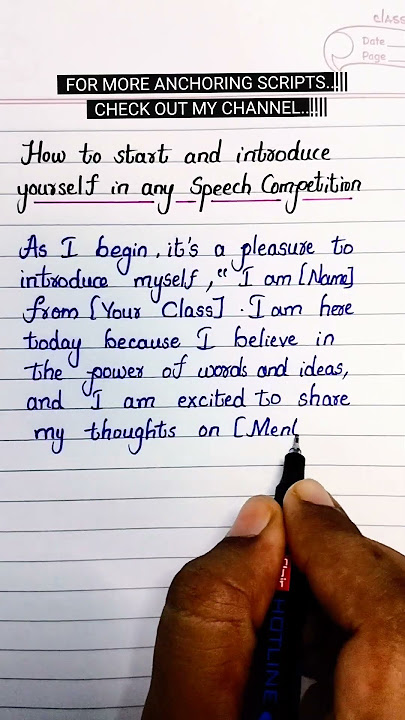 CLASS
Date
Page
FOR MORE ANCHORING SCRIPTS..!||
CHECK OUT MY CHANNEL..!!||
How to start and introduce
yourself in any Speech Competition
As I begin, it's a pleasure to
introduce myself, "I am [Name]
from [Your Class]. I am here
today because I believe in
the power of words and ideas,
and I am excited to share
my thoughts on [Men
HOTLINE